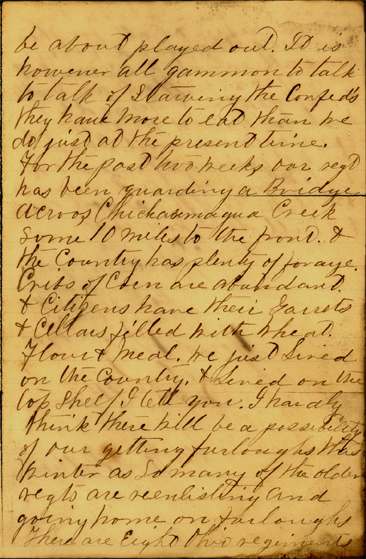 be about played out. It is
however all gammon to talk
to talk of Starving the Confeds
they have more to eat than we
do just at the present time.
For the past two weeks our regt
has been guarding a Bridge
across Chickamaugua Creek
some 10 miles to the front. &
the Country has plenty of forage.
Cribs of Corn are abundant.
& Citizens have their Garrets
& Cellars filled with wheat.
Flour & Meal. We just Lived
on the Country. & Lived on the
top Shelf I tell you. I hardly
think there will be a possibility
of our getting furloughs this
winter as So many of the older
regts are reenlisting and
going home on furloughs
There are Eight Ohio regiments